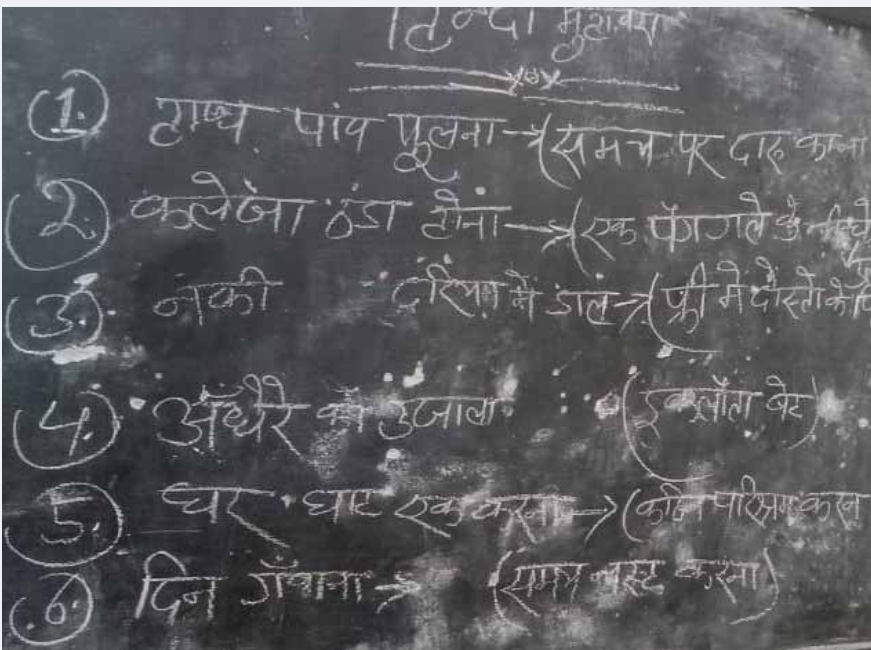 हिन्दी मुहावरा
1. हाथ पांव फूलना → (समय पर दारू का ना
2. कलेजा ठंडा होना → (एक पैग गले के नीचे
3. नकी दरिया में डाल → (फ्री में दोस्तो के
4. अँधेरे का उजाला (इकलौता बेटा)
5. घर घाट एक करना → (कठिन परिश्रम करन
6. दिन गँवाना → (समय नस्ट करना)